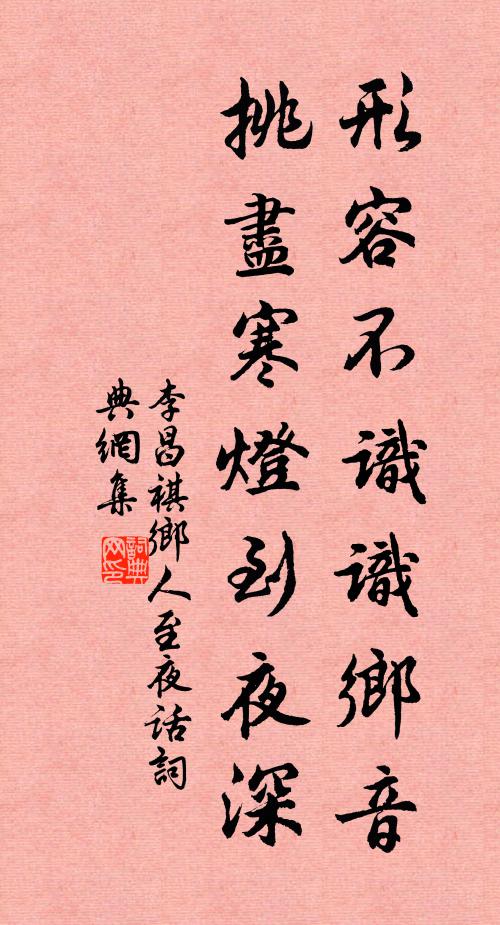 形容不識識鄉音
挑盡寒燈到夜深
李昌祺鄉人至夜話詞
典網集
詞典
网印